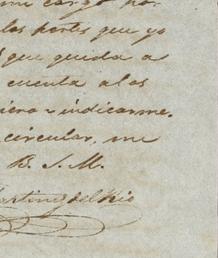 mi cargo por
las partes que yo
que queda a
cuenta a los
indicarme.
circular, me
B. S. M.
Martinez del Rio